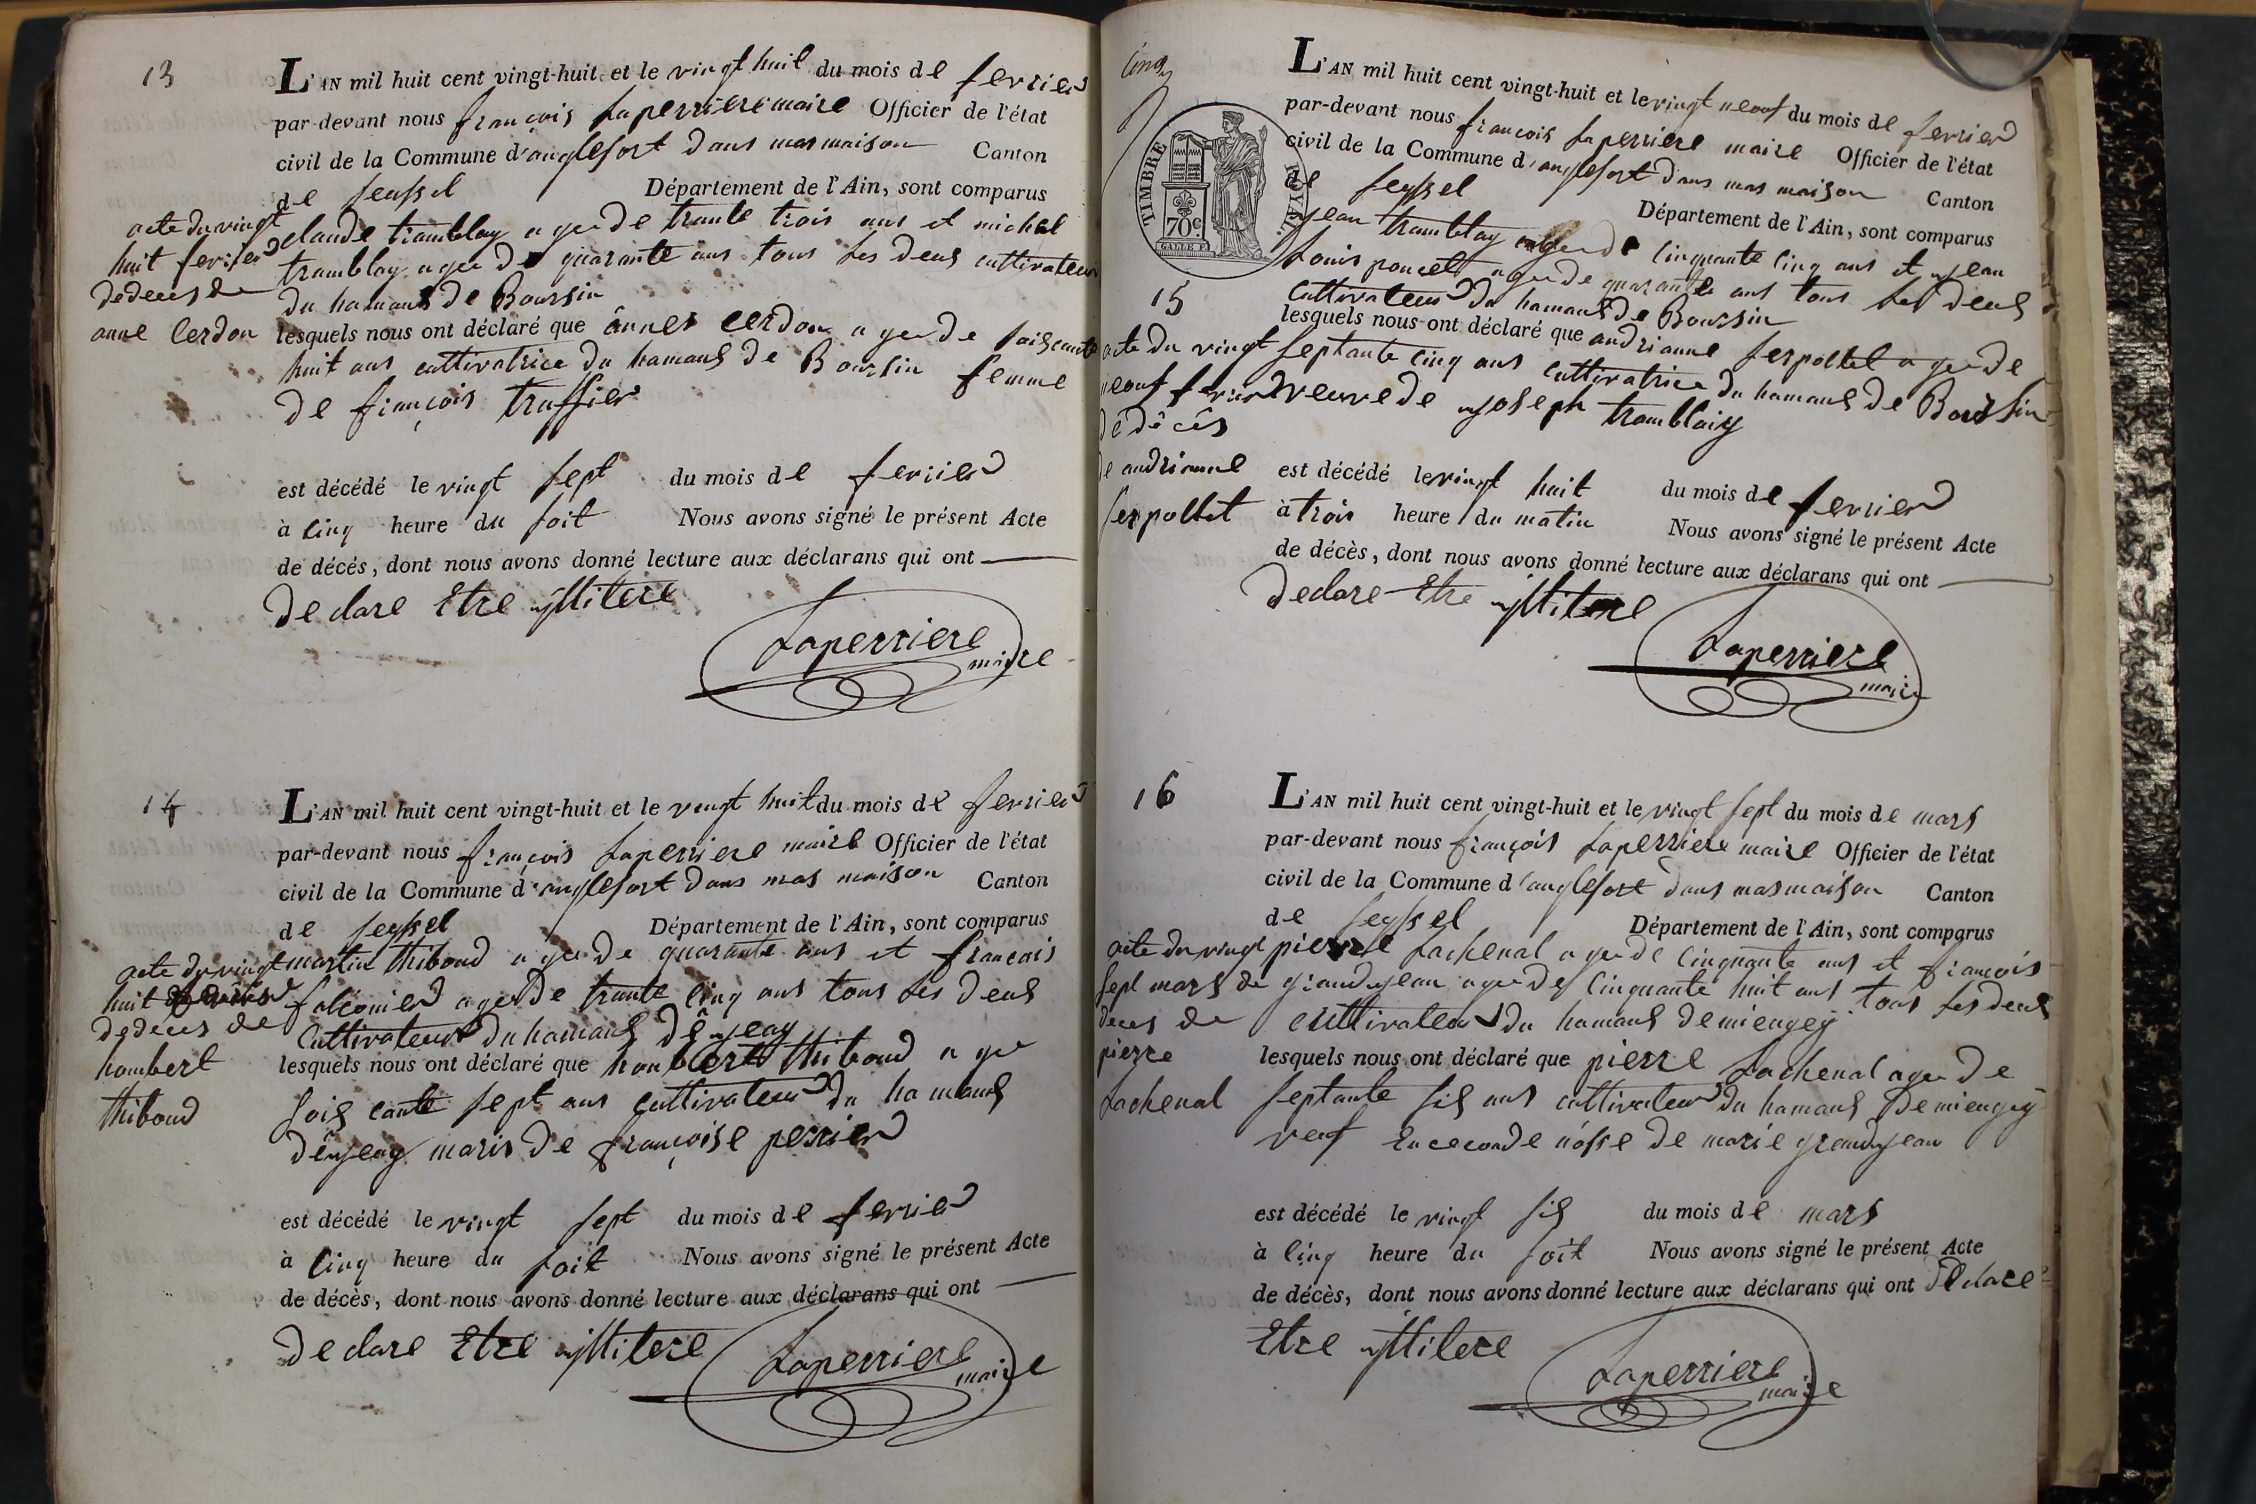 13
L'AN mil huit cent vingt-huit et le vingt huit du mois de fevrier
par-devant nous françois Laperriere maire Officier de l'état
civil de la Commune d'anglefort dans mas maison Canton
de Seyssel Département de l'Ain, sont comparus
claude tramblay agee de trante trois ans et michel
tramblay agee de quarante ans tous Les deus cultivateur
du hamaus de Boursin
lesquels nous ont déclaré que annes cerdon agee de soiscante
huit ans cultivatrice du hamaus de Boursin femme
de françois truffier
acte du vingt
huit fevrier
de deces de
anne Cerdon
est décédé le vingt sept du mois de fevrier
à cinq heure du soit Nous avons signé le présent Acte
de décés, dont nous avons donné lecture aux déclarans qui ont
declare Etre
Laperriere
maire
14
L'AN mil huit cent vingt-huit et le vingt huit du mois de fevrier
par-devant nous françois Laperriere maire Officier de l'état
civil de la Commune d'anglefort dans mas maison Canton
de Seyssel Département de l'Ain, sont comparus
martin thiboud agee de quarante ans et francois
falconier agee de trante cinq ans tous Les deus
Cultivateur du hamaus
lesquels nous ont déclaré que houbert thiboud a ge
sois cante sept ans cultivateur du hamaus
maris de françoise perrier
acte du vingt
huit
de deces de
houmbert
thiboud
est décédé le vingt sept du mois de fevrier
à cinq heure du soit Nous avons signé le présent Acte
de décès, dont nous avons donné lecture aux déclarans qui ont
declare Etre
Laperriere
maire
Cinq
TIMBRE ROYAL
70c
15
L'AN mil huit cent vingt-huit et le vingt neouf du mois de fevrier
par-devant nous françois Laperriere maire Officier de l'état
civil de la Commune d'anglefort dans mas maison Canton
de Seyssel Département de l'Ain, sont comparus
jean tramblay agee de cinquante cinq ans et jean
Louis poncet agee de quarante ans tous Les deus
Cultivateur du hamaus de Boursin
lesquels nous ont déclaré que andrianne Serpollet agee de
septante cinq ans cultivatrice du hamaus de Boursin
veuve de joseph tramblaiy
acte du vingt
neouf fevrier
de décés
de andrianne
Serpollet
est décédé le vingt huit du mois de fevrier
à trois heure du matin Nous avons signé le présent Acte
de décès, dont nous avons donné lecture aux déclarans qui ont
declare Etre
Laperriere
maire
16
L'AN mil huit cent vingt-huit et le vingt sept du mois de mars
par-devant nous françois Laperriere maire Officier de l'état
civil de la Commune d'anglefort dans mas maison Canton
de Seyssel Département de l'Ain, sont comparus
pierre Lachenal agee de cinquante ans et françois
grandjean agee de cinquante huit ans tous Les deus
cultivateur du hamaus de miengey
lesquels nous ont déclaré que pierre Lachenal agee de
septante sis ans cultivateur du hamaus de miengey
veuf En ceconde nosse de marie grandjean
acte du vingt
sept mars de
deces de
pierre
Lachenal
est décédé le vingt sis du mois de mars
à cinq heure du soit Nous avons signé le présent Acte
de décès, dont nous avons donné lecture aux déclarans qui ont declare
Etre
Laperriere
maire